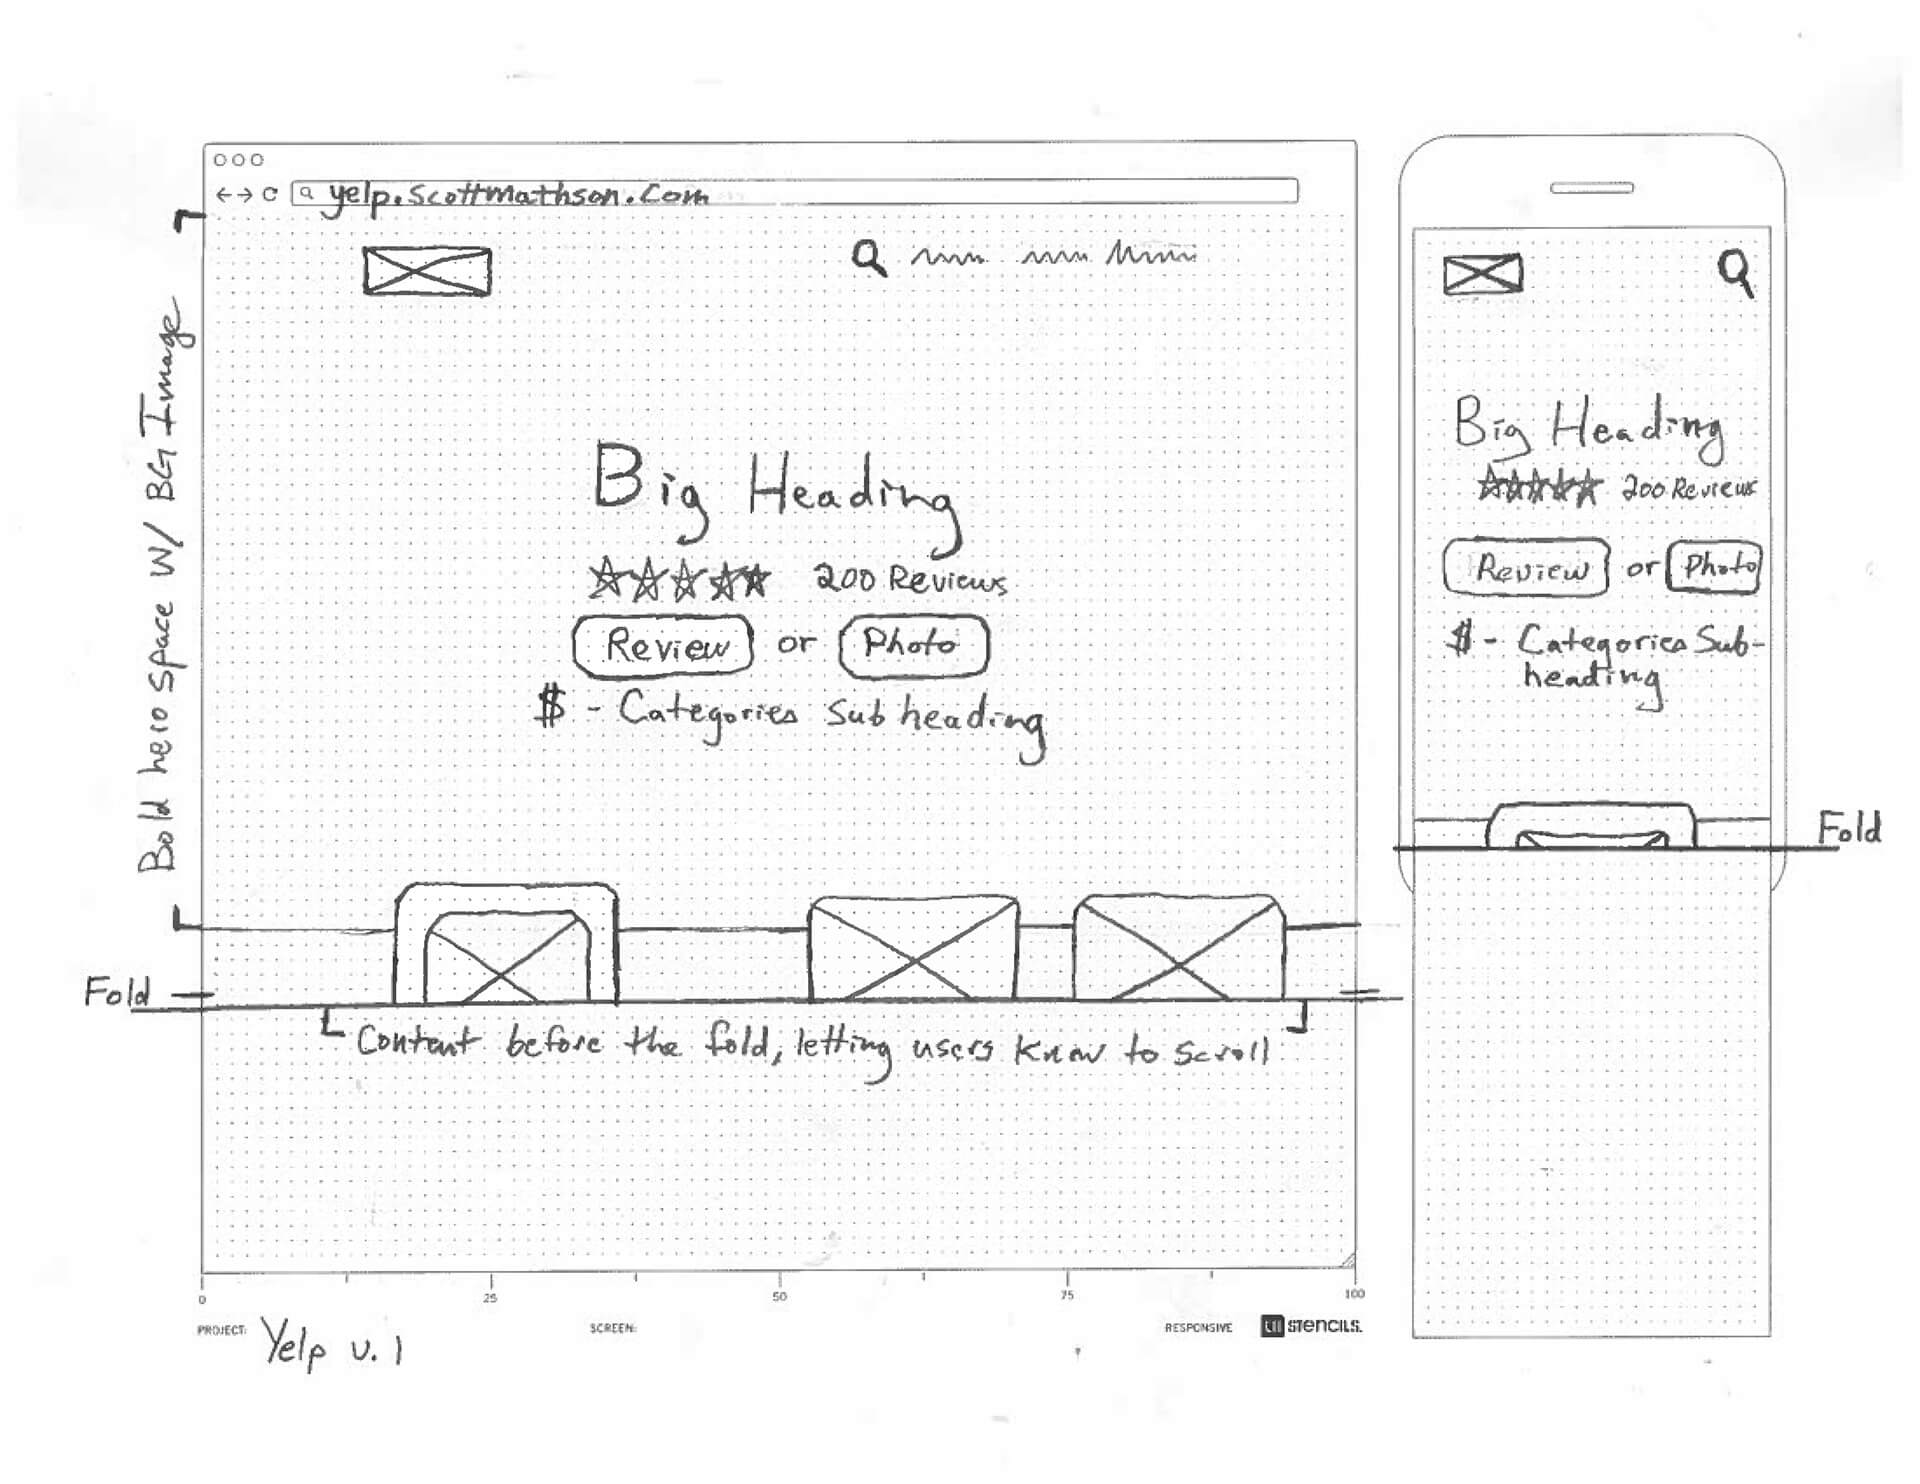 yelp.scottmathson.com
Bold hero space w/ BG Image
Big Heading
200 Reviews
Review or Photo
$ - Categories Subheading
Fold
Content before the fold, letting users know to scroll
0 25 50 75 100
PROJECT: Yelp v.1
SCREEN:
RESPONSIVE
UI STENCILS.
Big Heading
200 Reviews
Review or Photo
$ - Categories Sub-
heading
Fold